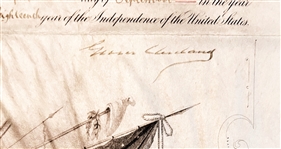 day of September in the year
Eighteenth year of the Independence of the United States.
Grover Cleveland